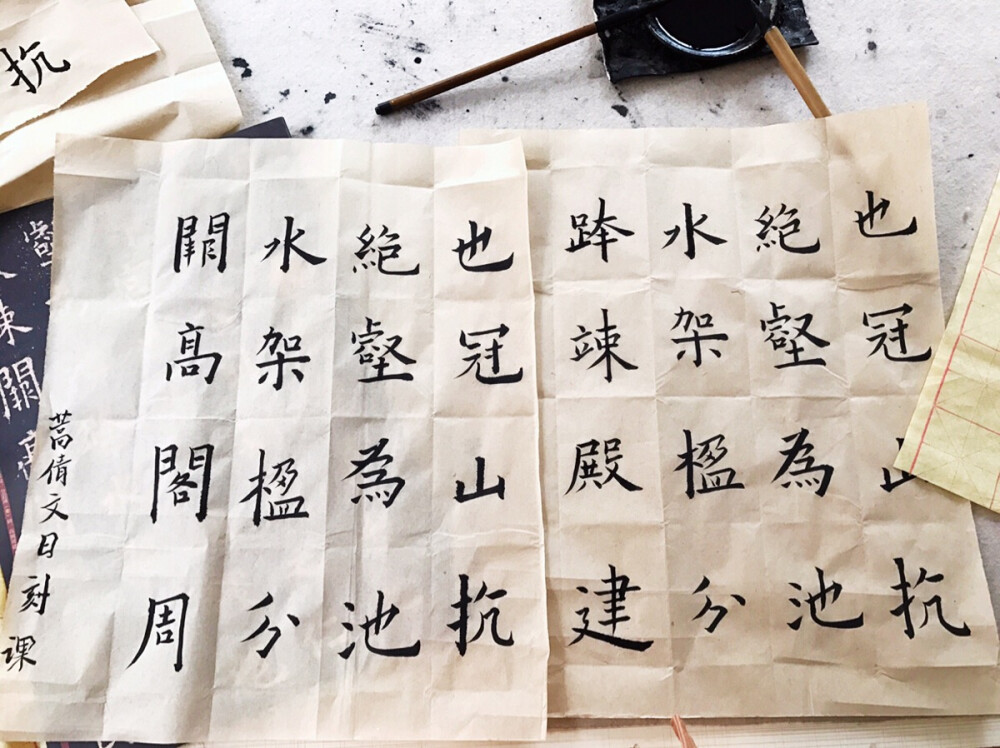 也冠山抗
絶壑為池
水架楹分
跨竦殿建
也冠山抗
絶壑為池
水架楹分
闕髙閣周
蒿倩文日刻课
抗
壑
竦闕髙